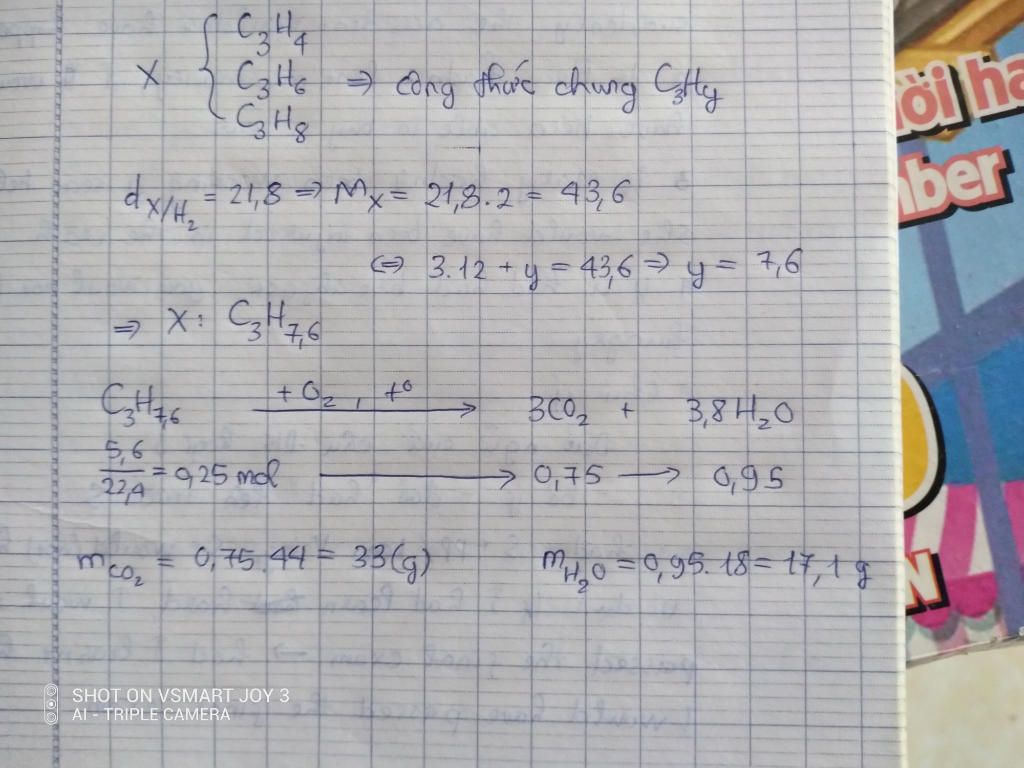 C₃H₄
X { C₃H₆ ⇒ công thức chung C₃Hy
C₃H₈
d X/H₂ = 21,8 ⇒ Mx = 21,8.2 = 43,6
⇔ 3.12 + y = 43,6 ⇒ y = 7,6
⇒ X: C₃H₇,₆
C₃H₇,₆ + O₂, t⁰ → 3CO₂ + 3,8H₂O
5,6/22,4 = 0,25 mol → 0,75 → 0,95
mCO₂ = 0,75.44 = 33(g) mH₂O = 0,95.18 = 17,1 g
ời ha
mber
N
SHOT ON VSMART JOY 3
AI - TRIPLE CAMERA